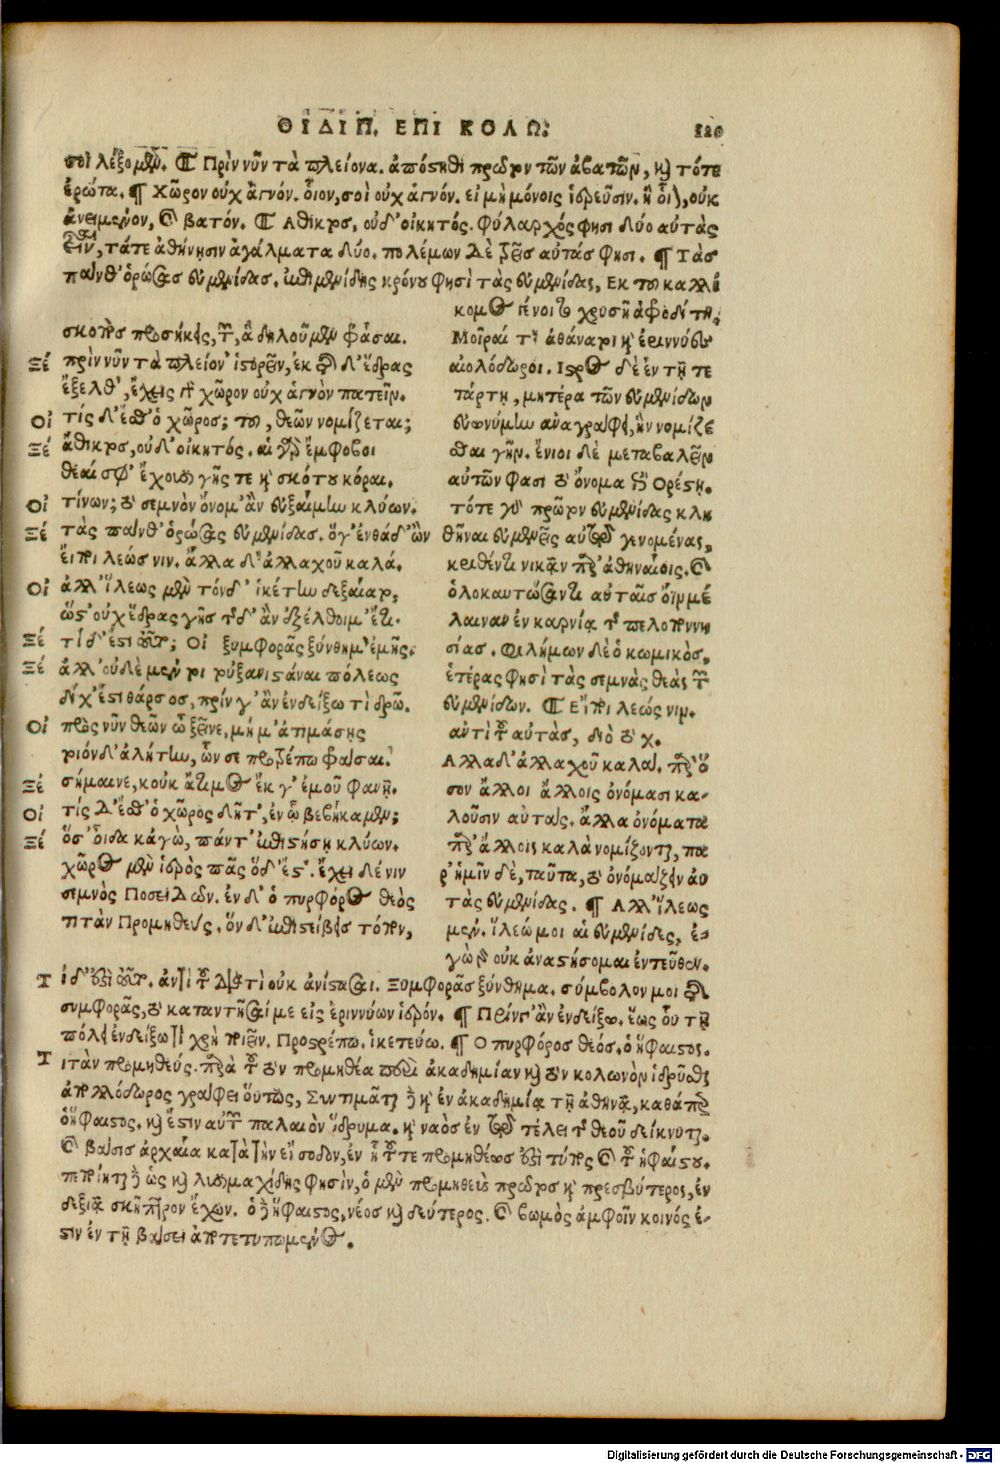 ΟΙΔΙΠ. ΕΠΙ ΚΟΛΩ.
σοι λέξομεν. Πρὶν νῦν τὰ πλείονα. ἀπόστηθι πρῶτον τῶν ἀβατῶν, καὶ τότε
ἐρώτα. ¶ Χῶρον οὐχ ἁγνόν. ὅιον, σοὶ οὐχ ἁγνόν. εἰ μὴ μόνοις ἱερεῦσιν. ἢ ὅτι, οὐκ
ἀνειμένον, καὶ βατόν. Αθικτος, οὐδ' οἰκητός. Φύλαρχός φησι δύο αὐτὰς
εἶναι, τάτε ἀθήνησιν ἀγάλματα δύο. πολέμων Δὲ τρεῖς αὐτάς φησι. ¶ Τὰς
πάνθ' ὁρώσας εὐμενίδας. ἐπιμενίδης κρόνου φησὶ τὰς εὐμενίδας, Εκ τοῦ καλλί
κομος γένοιτο χρυσῆ ἀφροδίτη,
Μοῖραί τ' ἀθάνατοι καὶ ἐριννύες
αἰολόδωροι. Ιστρος δὲ ἐν τῇ τε
τάρτη, μητέρα τῶν εὐμενίδων
εὐωνύμην ἀναγράφει, ἣν νομίζε
σθαι γῆν. ἔνιοι δὲ μεταβαλεῖν
αὐτῶν φασι τὸ ὄνομα ἐπὶ Ορέστη.
τότε γὰρ πρῶτον εὐμενίδας κλη
θῆναι εὐμενεῖς αὐτῷ γενομένας,
κριθέντι νικᾶν παρ' ἀθηναίοις. καὶ
ὁλοκαυτώσαντι αὐταῖς ὄϊν μέ
λαιναν ἐν καρνίᾳ τῆς πελοποννη
σίας. Φιλήμων δὲ ὁ κωμικὸς,
ἑτέρας φησὶ τὰς σεμνὰς θεὰς τῶν
εὐμενίδων. Εἴποι λεώς νιν.
ἀντὶ τοῦ αὐτὰς, διὸ τὸ χ.
Αλλα δ' ἀλλαχοῦ καλά. παρ' ὅ
σον ἄλλοι ἄλλοις ὀνόμασι κα-
λοῦσιν αὐτάς. ἄλλα ὀνόματα
παρ' ἄλλοις καλὰ νομίζονται, πα
ρ' ἡμῖν δὲ, ταῦτα, τὸ ὀνομάζειν αὐ
τὰς εὐμενίδας. ¶ Αλλ' ἵλεως
μέν. ἵλεώ μοι αἱ εὐμενίδες, ἐ-
γὼ γὰρ οὐκ ἀναστήσομαι ἐντεῦθεν.
σκοπὸς προσήκεις, τῶν, ἃ δηλοῦμεν φράσαι.
Ξέ πρὶν νῦν τὰ πλείον' ἱστορεῖν, ἐκ τῆσδ' ἕδρας
ἔξελθ', ἔχεις γὰρ χῶρον οὐχ ἁγνὸν πατεῖν.
Οἰ τίς δ' ἔσθ' ὁ χῶρος; τοῦ, θεῶν νομίζεται;
Ξέ ἄθικτος, οὐδ' οἰκητός. αἱ γὰρ ἔμφοβοι
θεαί σφ' ἔχουσι γῆς τε καὶ σκότου κόραι.
Οἰ τίνων; τὸ σεμνὸν ὄνομ' ἂν εὐξαίμην κλύων.
Ξέ τὰς πάνθ' ὁρώσας εὐμενίδας. ὅγ' ἐνθάδ' ὢν
εἴποι λεώς νιν. ἄλλα δ' ἀλλαχοῦ καλά.
Οἰ ἀλλ' ἵλεως μὲν τόνδ' ἱκέτην δεξαίατο,
ὥς τ' οὐχ ἕδρας γῆς τῆσδ' ἂν ἐξέλθοιμ' ἔτι.
Ξέ τί δ' ἐστὶ τοῦτο; Οἰ ξυμφορᾶς ξύνθημ' ἐμῆς.
Ξέ ἀλλ' οὐδὲ μέν τοι τοὐξανιστάναι πόλεως
δίχ' ἔστι θάρσος, πρίν γ' ἂν ἐνδείξω τί δρῶ.
Οἰ πρὸς νῦν θεῶν ὦ ξεῖνε, μή μ' ἀτιμάσῃς
τοιόνδ' ἀλήτην, ὧν σε προστρέπω φράσαι.
Ξέ σήμαινε, κοὐκ ἄτιμος ἔκ γ' ἐμοῦ φανῇ.
Οἰ τίς Δ' ἔσθ' ὁ χῶρος δῆτ', ἐν ᾧ βεβήκαμεν;
Ξέ ὅσ' οἶδα κἀγὼ, πάντ' ἐπιστήσῃ κλύων.
χῶρος μὲν ἱερὸς πᾶς ὅδ' ἔστ'. ἔχει δέ νιν
σεμνὸς Ποσειδῶν. ἐν δ' ὁ πυρφόρος θεὸς
τιτὰν Προμηθεύς. ὃν δ' ἐπιστείβεις τόπον,
Τ ίδ' ἐστὶ τοῦτο. ἀντὶ τοῦ διὰ τὶ οὐκ ἀνίστασαι. Ξυμφορᾶς ξύνθημα. σύμβολον μοι τῆς
συμφορᾶς, τὸ καταντῆσαί με εἰς ἐριννύων ἱερόν. ¶ Πρίν γ' ἂν ἐνδείξω. ἕως οὗ τῇ
πόλει ἐνδείξω τί χρὴ ποιεῖν. Προστρέπω. ἱκετεύω. ¶ Ο πυρφόρος θεός. ὁ ἥφαιστος.
Τ ιτὰν προμηθεύς. περὶ τοῦ τὸν προμηθέα περὶ ἀκαδημίαν καὶ τὸν κολωνὸν ἱδρῦσθαι
ἀπολλόδωρος γράφει οὕτως, Συντιμᾶται δὲ καὶ ἐν ἀκαδημίᾳ τῇ ἀθηνᾷ, καθάπερ
ὁ ἥφαιστος. καὶ ἔστιν αὐτῷ παλαιὸν ἵδρυμα. καὶ ναὸς ἐν τῷ τέλει τοῦ θεοῦ δείκνυται.
καὶ βάσις ἀρχαία κατὰ τὴν εἴσοδον, ἐν ᾗ τοῦ τε προμηθέως ἐστὶ τύπος καὶ τοῦ ἡφαίστου.
πεποίηται δὲ ὡς καὶ λυσιμαχίδης φησὶν, ὁ μὲν προμηθεὺς πρῶτος καὶ πρεσβύτερος, ἐν
δεξιᾷ σκῆπτρον ἔχων. ὁ δὲ ἥφαιστος, νέος καὶ δεύτερος. καὶ βωμὸς ἀμφοῖν κοινός ἐ-
στιν ἐν τῇ βάσει ἀποτετυπωμένος.
Digitalisierung gefördert durch die Deutsche Forschungsgemeinschaft - DFG